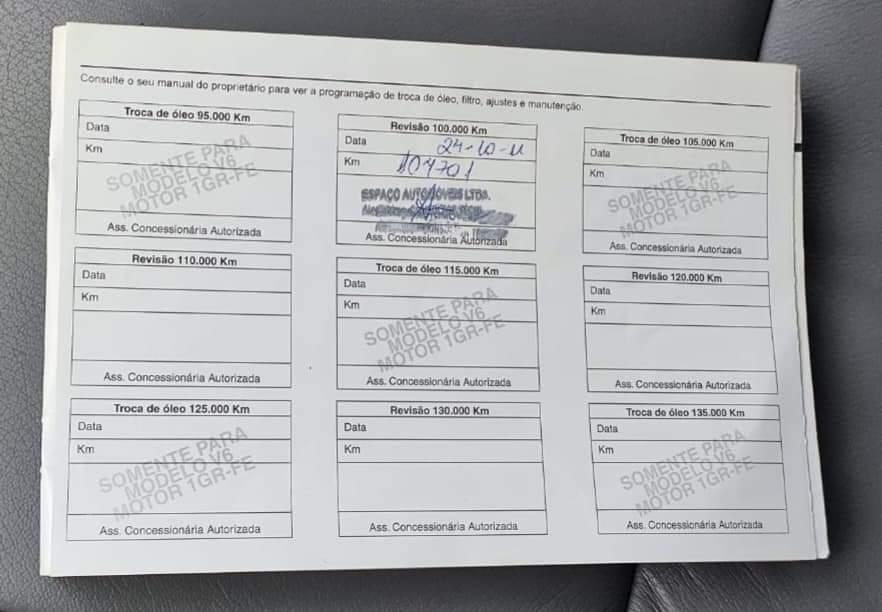 Consulte o seu manual do proprietário para ver a programação de troca de óleo, filtro, ajustes e manutenção.
Troca de óleo 95.000 Km
Data
Km
SOMENTE PARA
MODELO V6
MOTOR 1GR-FE
Ass. Concessionária Autorizada
Revisão 100.000 Km
Data 24-10-11
Km 104701
ESPAÇO AUTOMÓVEIS LTDA.
Ass. Concessionária Autorizada
Troca de óleo 105.000 Km
Data
Km
SOMENTE PARA
MODELO V6
MOTOR 1GR-FE
Ass. Concessionária Autorizada
Revisão 110.000 Km
Data
Km
Ass. Concessionária Autorizada
Troca de óleo 115.000 Km
Data
Km
SOMENTE PARA
MODELO V6
MOTOR 1GR-FE
Ass. Concessionária Autorizada
Revisão 120.000 Km
Data
Km
Ass. Concessionária Autorizada
Troca de óleo 125.000 Km
Data
Km
SOMENTE PARA
MODELO V6
MOTOR 1GR-FE
Ass. Concessionária Autorizada
Revisão 130.000 Km
Data
Km
Ass. Concessionária Autorizada
Troca de óleo 135.000 Km
Data
Km
SOMENTE PARA
MODELO V6
MOTOR 1GR-FE
Ass. Concessionária Autorizada